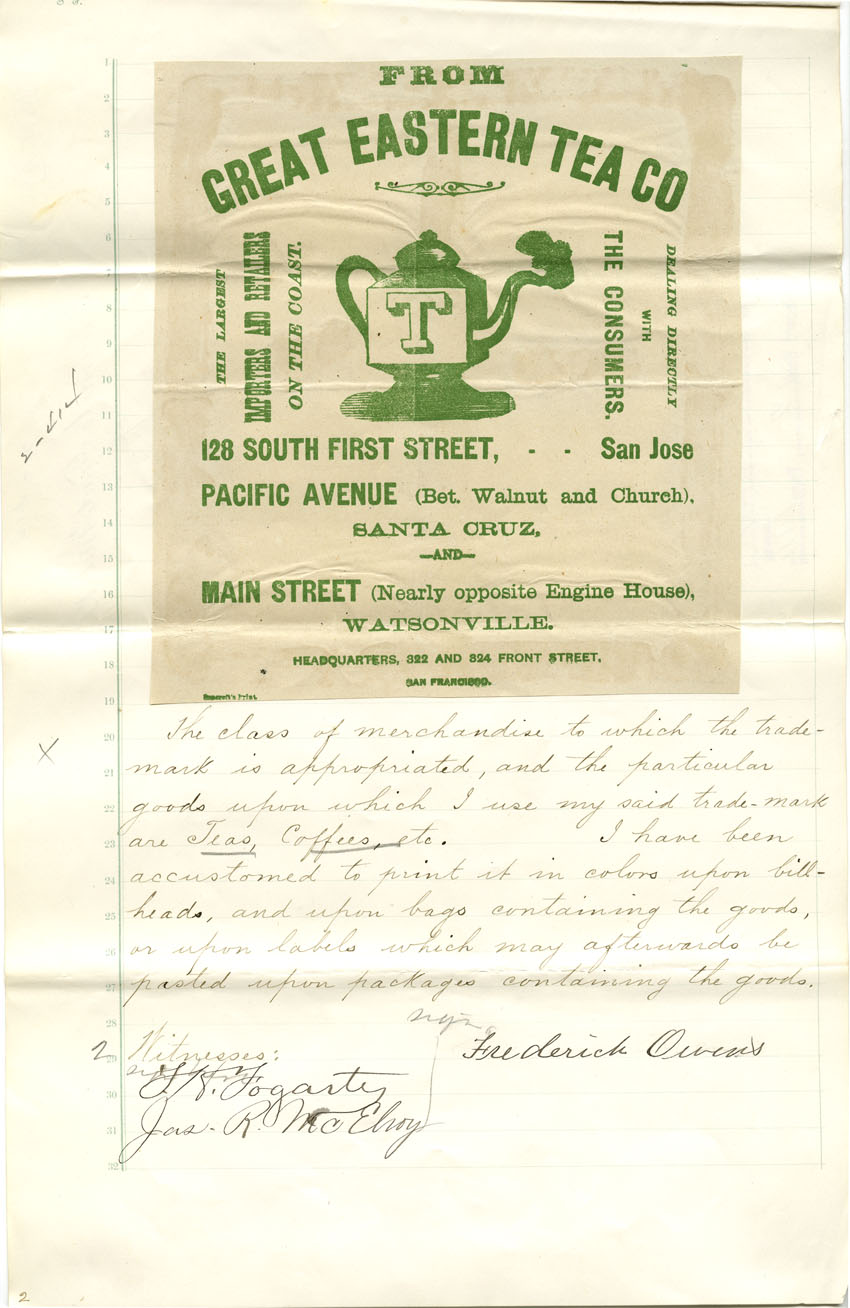 1
2
3
4
5
6
7
8
9
10
11
12
13
14
15
16
17
18
19
20
21
22
23
24
25
26
27
28
29
30
31
32
FROM
GREAT EASTERN TEA CO
THE LARGEST
IMPORTERS AND RETAILERS
ON THE COAST.
T
DEALING DIRECTLY
WITH
THE CONSUMERS.
128 SOUTH FIRST STREET, - - San Jose
PACIFIC AVENUE (Bet. Walnut and Church),
SANTA CRUZ,
—AND—
MAIN STREET (Nearly opposite Engine House),
WATSONVILLE.
HEADQUARTERS, 322 AND 324 FRONT STREET,
SAN FRANCISCO.
Bancroft's Print.
The class of merchandise to which the trade-
mark is appropriated, and the particular
goods upon which I use my said trade-mark
are Teas, Coffees, etc. I have been
accustomed to print it in colors upon bill-
heads, and upon bags containing the goods,
or upon labels which may afterwards be
pasted upon packages containing the goods.
Frederick Owens
2 Witnesses:
Fogarty
Jas. R. McElroy
2